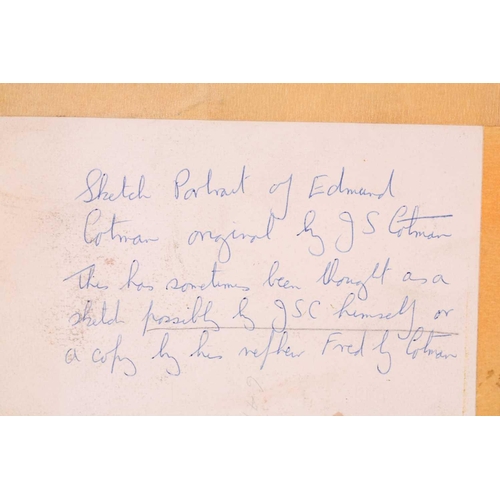 Sketch Portrait of Edmund
Cotman original by J S Cotman
This has sometimes been thought as a
sketch possibly by JSC himself or
a copy by his nephew Fred by Cotman